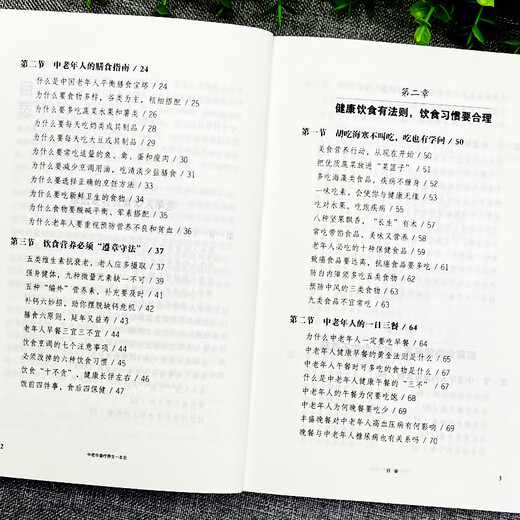 第二节 中老年人的膳食指南 / 24
什么是中国老年人平衡膳食宝塔 / 24
为什么要食物多样，谷类为主，粗细搭配 / 25
为什么要多吃蔬菜水果和薯类 / 26
为什么要每天吃奶类或其制品 / 28
为什么要每天吃大豆或其制品 / 29
为什么要常吃适量的鱼、禽、蛋和瘦肉 / 30
为什么要减少烹调用油，吃清淡少盐膳食 / 31
为什么要选择正确的烹饪方法 / 31
为什么要吃新鲜卫生的食物 / 31
为什么食物要酸碱平衡、荤素搭配 / 32
为什么老年人要重视预防营养不良和贫血 / 33
第三节 饮食营养必须“遵章守法” / 37
五类维生素抗衰老，老人应多摄取 / 37
强身健体，九种微量元素缺一不可 / 39
五种“编外”营养素，补充要及时 / 41
补钙六妙招，助你摆脱缺钙危机 / 42
膳食六原则，延年又益寿 / 43
老年人早餐三宜三不宜 / 44
饮食烹调的七个注意事项 / 44
必须改掉的六种饮食习惯 / 45
饮食“十不贪”，健康长伴左右 / 46
饭前四件事，食后四保健 / 47
2
中老年食疗养生一本全
第二章
健康饮食有法则，饮食习惯要合理
第一节 胡吃海塞不叫吃，吃也有学问 / 50
美食营养行动，从现在开始 / 50
把优质蔬菜放进“菜篮子” / 51
多吃海藻类食品，疾病不缠身 / 52
一味吃素，会使你与健康无缘 / 53
吃对水果，吃跑疾病 / 55
八种坚果飘香，“长生”有术 / 57
常吃带馅食品，美味又营养 / 58
老年人必吃的十种保健食品 / 60
致癌食品要远离，抗癌食品要多吃 / 61
防白内障须多吃五类食物 / 62
预防中风的三类食物 / 63
九类食品不宜常吃 / 63
第二节 中老年人的一日三餐 / 64
为什么中老年人一定要吃早餐 / 64
中老年人健康早餐的黄金法则是什么 / 65
中老年人午餐时可多吃的食物是什么 / 66
什么是中老年人健康午餐的“三不” / 67
中老年人的午餐为何要吃饱 / 68
中老年人为何晚餐要吃少 / 69
丰盛晚餐对中老年人高血压病有何影响 / 69
晚餐与中老年人糖尿病也有关系吗 / 70
目录
3